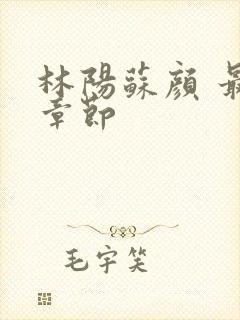 林陽蘇顏 最
章節
毛宇笑